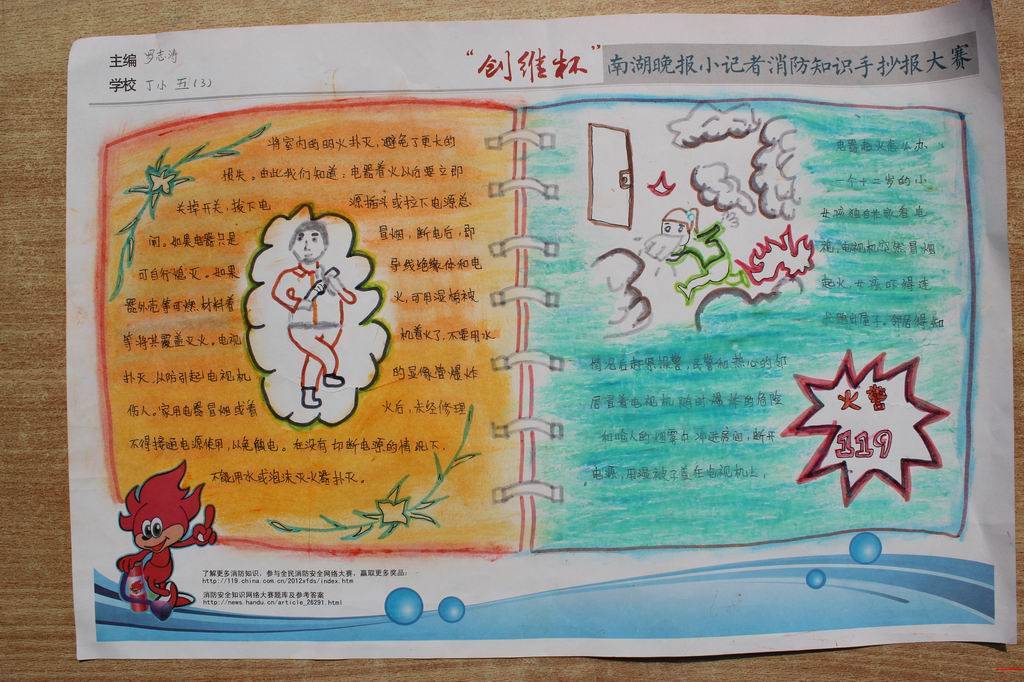 主编 罗志涛
学校 丁小 五(3)
"创维杯"南湖晚报小记者消防知识手抄报大赛
将室内的明火扑灭,避免了更大的
损失。由此我们知道:电器着火以后要立即
关掉开关,拔下电 源插头或拉下电源总
闸。如果电器只是 冒烟,断电后,即
可自行熄灭。如果 导线绝缘体和电
器外壳等可燃材料着 火,可用湿棉被
等将其覆盖灭火。电视 机着火了,不要用水
扑灭,以防引起电视机 的显像管爆炸
伤人。家用电器冒烟或着 火后,未经修理
不得接通电源使用,以免触电。在没有切断电源的情况下,
不能用水或泡沫灭火器扑灭。
电器起火怎么办
一个十二岁的小
女孩独自在家看电
视,电视机突然冒烟
起火,女孩吓得连
忙跑出屋子。邻居得知
情况后赶紧报警,民警和热心的邻
居冒着电视机随时爆炸的危险
和呛人的烟雾冲进房间,断开
电源,用湿被子盖在电视机上,
火警
119
了解更多消防知识,参与全民消防安全网络大赛,赢取更多奖品:
http://119.china.com.cn/2012xfds/index.htm
消防安全知识网络大赛题库及参考答案
http://news.handu.cn/article_26291.html